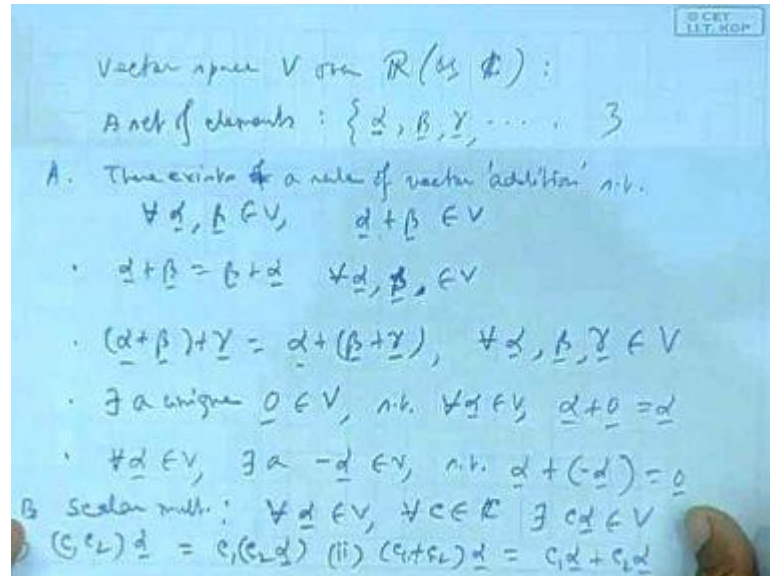 © CET
I.I.T. KGP
Vector space V over ℝ (or ℂ) :
A set of elements : { α, β, γ, .... }
A. There exists a rule of vector 'addition' s.t.
∀ α, β ∈ V, α + β ∈ V
· α + β = β + α ∀ α, β, ∈ V
· (α + β) + γ = α + (β + γ), ∀ α, β, γ ∈ V
· ∃ a unique 0 ∈ V, s.t. ∀ α ∈ V, α + 0 = α
· ∀ α ∈ V, ∃ a -α ∈ V, s.t. α + (-α) = 0
B Scalar mult. : ∀ α ∈ V, ∀ c ∈ ℂ ∃ cα ∈ V
(c₁c₂) α = c₁(c₂α) (ii) (c₁+c₂) α = c₁α + c₂α